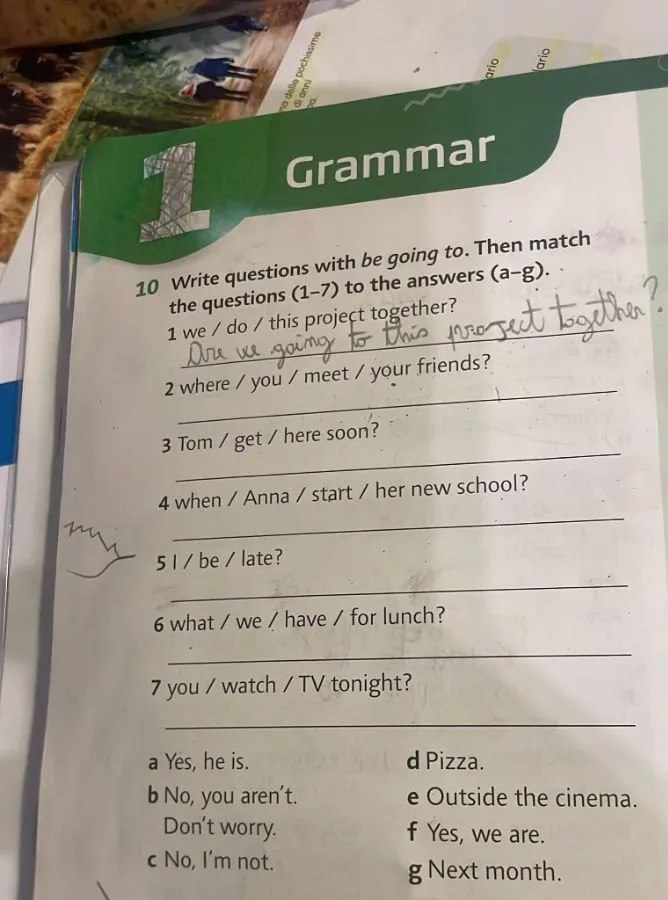 na delle pochissime
di anni
ario
ario
1 Grammar
10 Write questions with be going to. Then match
the questions (1–7) to the answers (a–g).
1 we / do / this project together?
Are we going to this project together?
2 where / you / meet / your friends?
3 Tom / get / here soon?
4 when / Anna / start / her new school?
5 I / be / late?
6 what / we / have / for lunch?
7 you / watch / TV tonight?
a Yes, he is.
b No, you aren't.
Don't worry.
c No, I'm not.
d Pizza.
e Outside the cinema.
f Yes, we are.
g Next month.